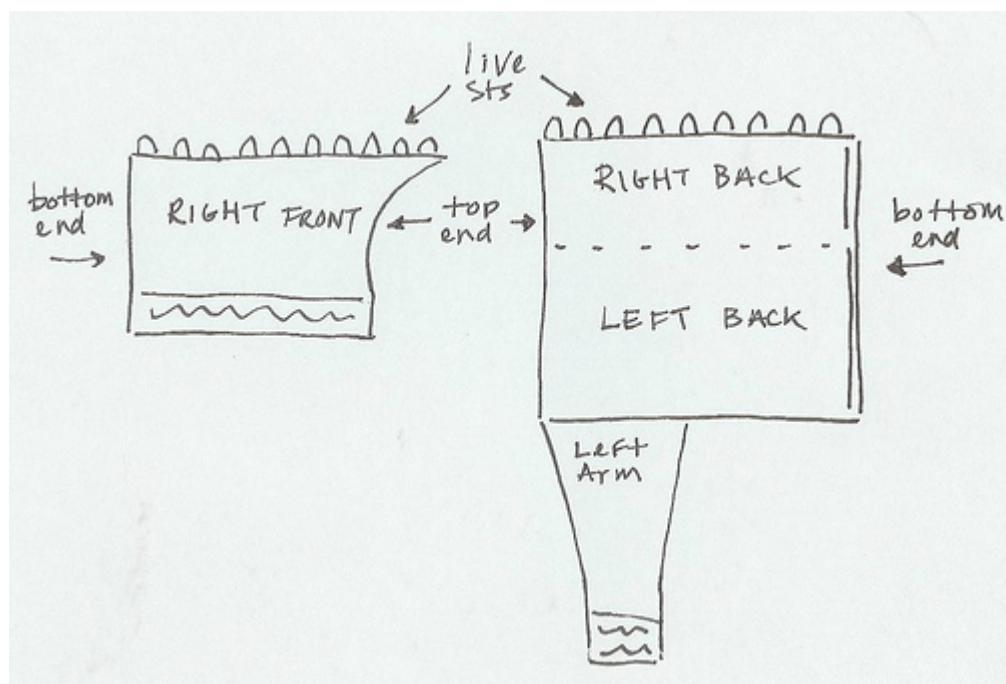 live
sts
bottom
end
RIGHT FRONT
top
end
RIGHT BACK
LEFT BACK
bottom
end
Left
Arm